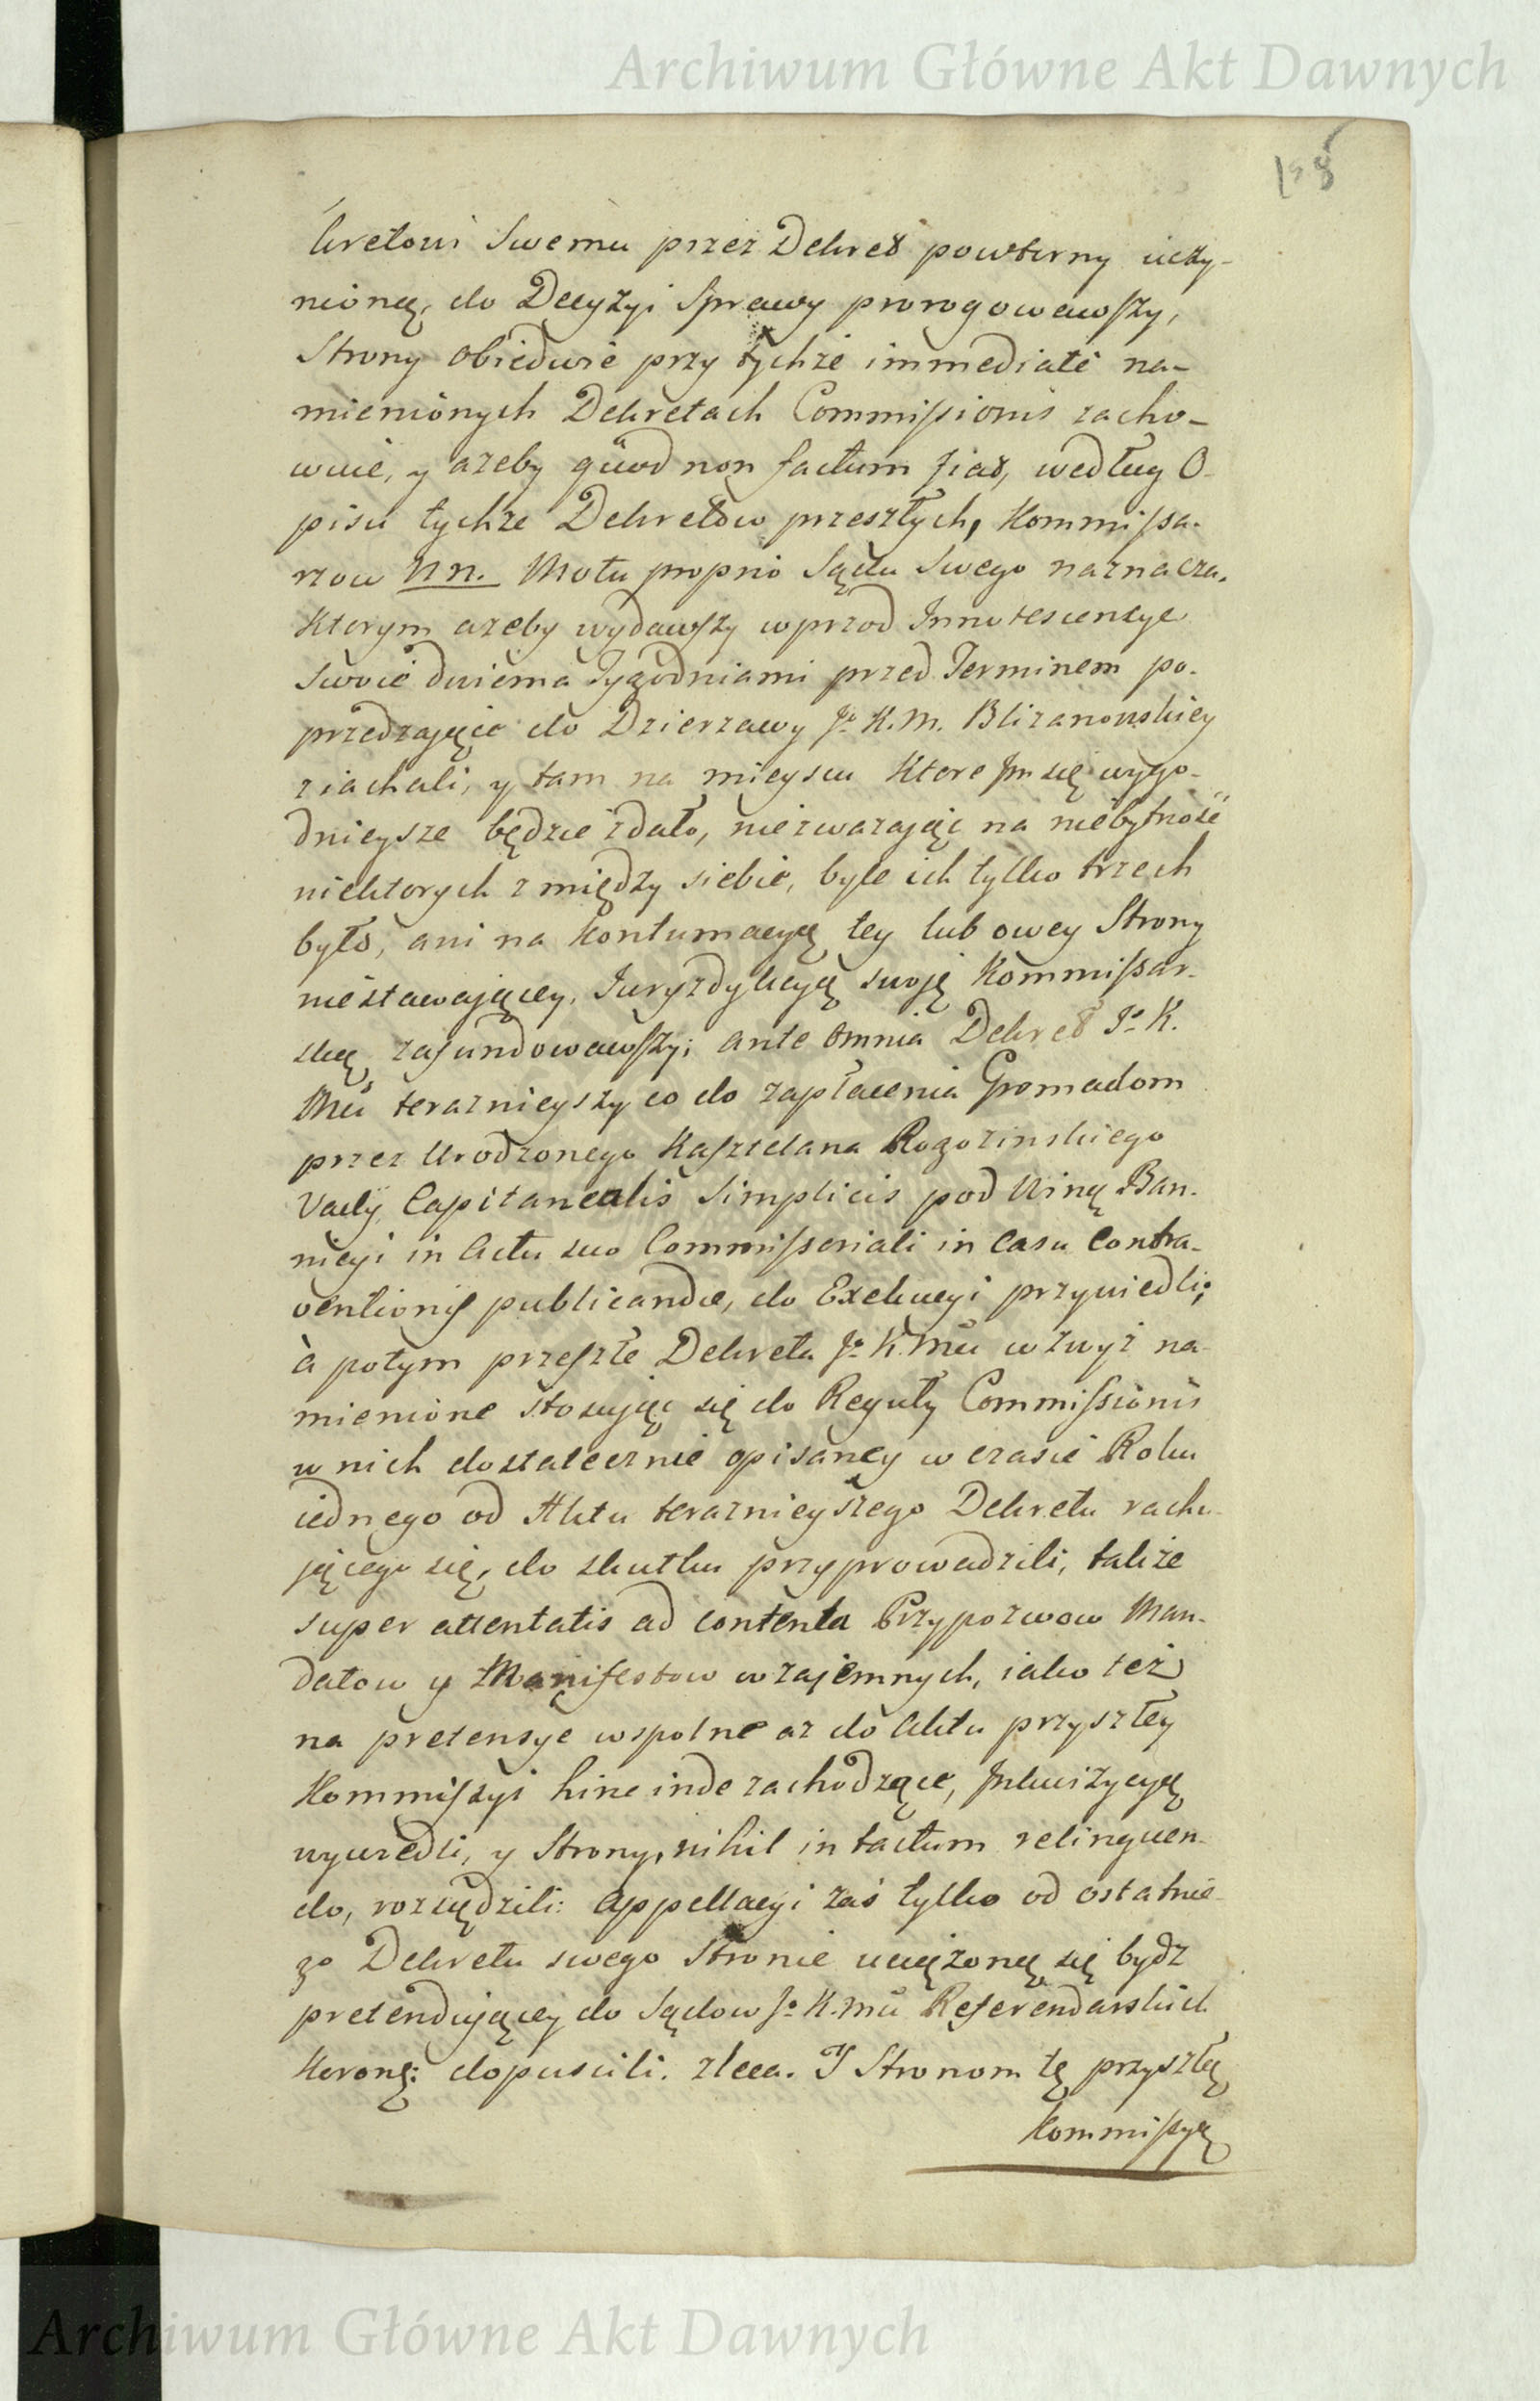 Archiwum Główne Akt Dawnych
158
kretowi Swemu przez Dekret powtorny uczy-
nioną, do Decyzyi Sprawy prorogowawszy,
Strony obiedwie przy tychże immediate na-
mienionych Dekretach Commissionis zacho-
wuie, y ażeby quod non factum fiat, według O-
pisu tychże Dekretow przeszłych, Kommissa-
rzow NN. Motu proprio Sądu Swego naznacza.
Ktorym ażeby wydawszy wprzod Innotescencye
swoie dwiema Tygodniami przed Terminem po-
przedzaiące do Dzierzawy Jo K. M. Blizanowskiey
ziachali, y tam na mieyscu ktore Im się wygo-
dnieysze będzie zdało, niezwazaiąc na niebytność
niektorych z między siebie, byle ich tylko trzech
było, ani na Kontumacyą tey lub owey Strony
niestawaiącey, Juryzdykcyą swoię Kommissar-
ską zafundowawszy; ante omnia Dekret Jo K.
Mci teraznieyszy co do zapłacenia Gromadom
przez Urodzonego Kasztelana Rogozinskiego
Vadij Capitanealis Simplicis pod Winą Ban-
nicyi in Actu suo Commissoriali in Casu Contra-
ventionis publicandæ, do Exekucyi przywiedli;
à potym przeszłe Dekreta Jo K. Mci wzwyż na-
mienione stosuiąc się do Reguły Commissionis
w nich dostatecznie opisaney w czasie Roku
iednego od Aktu teraznieyszego Dekretu rachu-
jącego się, do skutku przyprowadzili, także
super attentatis ad contenta Przypozwow Man-
datow y Manifestow wzajemnych, iako też
na pretensye wspolne az do Aktu przyszłey
Kommissyi hinc inde zachodzące, Inkwizycyą
wywiedli, y Strony, nihil intactum relinquen-
do, rozsądzili: Appellacyi zaś tylko od ostatnie-
go Dekretu swego Stronie uciążoną się bydz
pretenduiącey do Sądow Jo K. Mci Referendarskich
Koroną: dopuscili. zleca. Y Stronom tę przyszłą
Kommissyą
Archiwum Główne Akt Dawnych